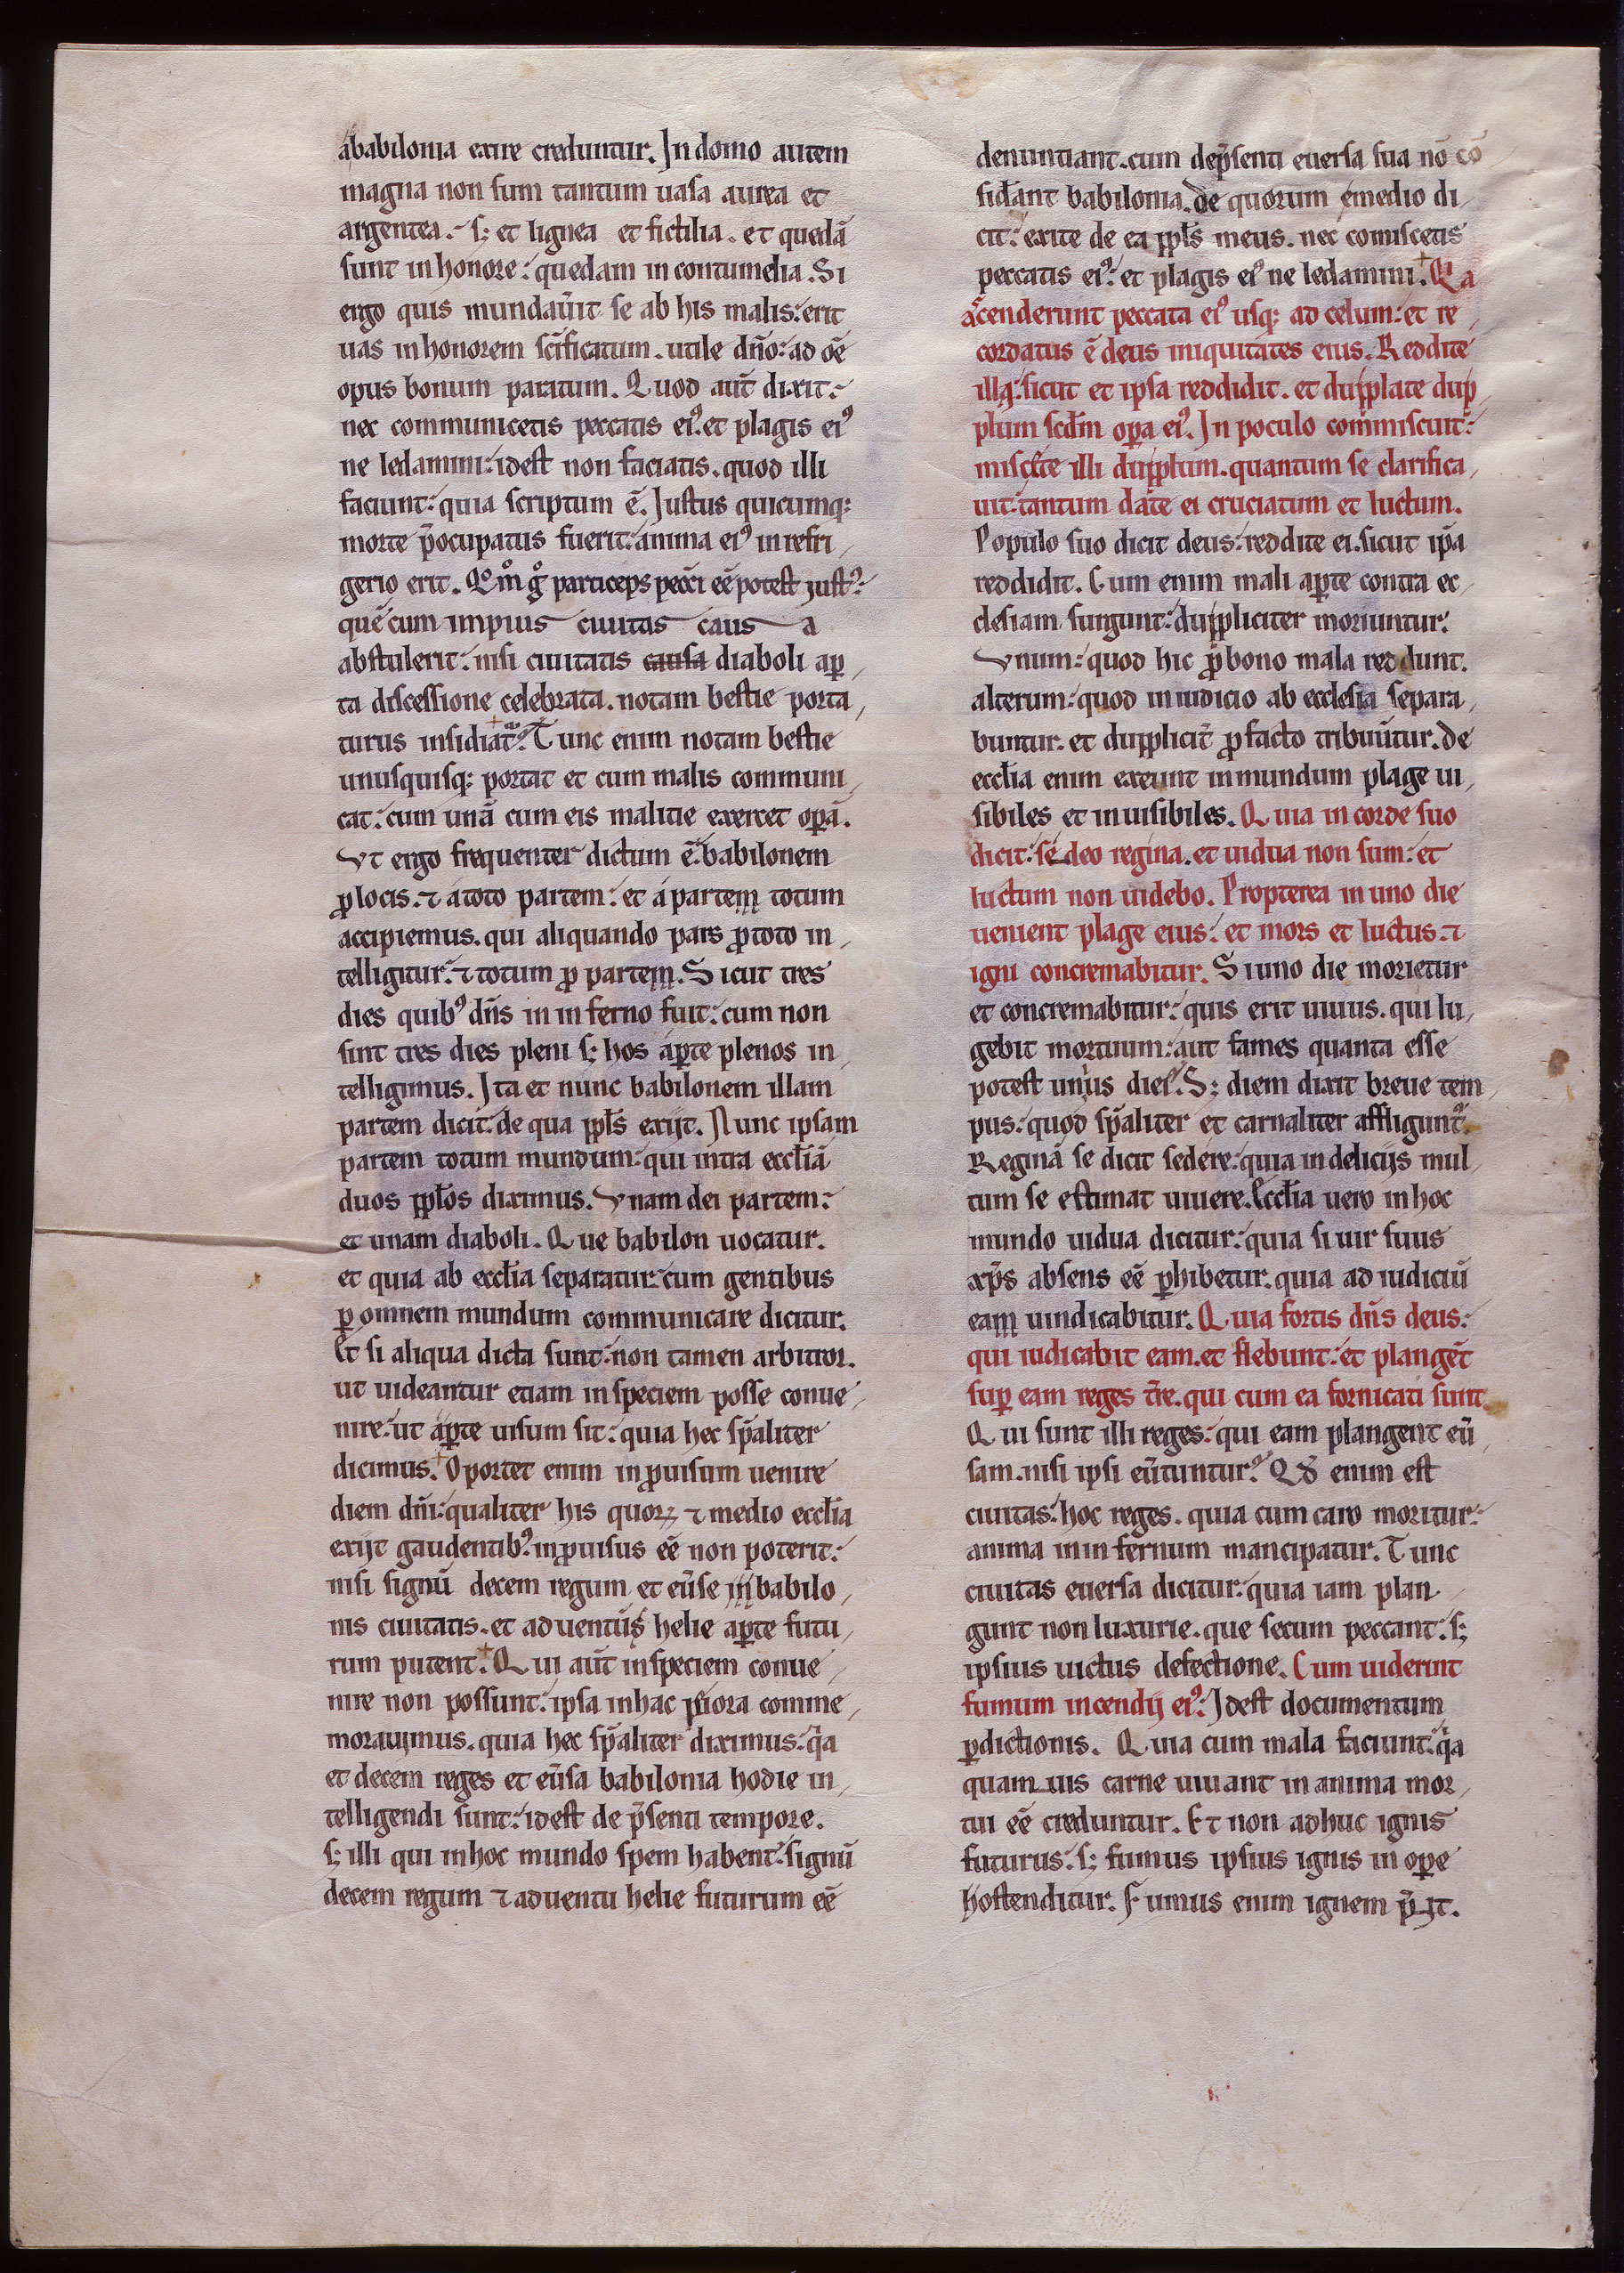 ababilonia exire creduntur. In domo autem
magna non sunt tantum uasa aurea et
argentea. s; et lignea et fictilia. et quedā
sunt in honore: quedam in contumelia. Si
ergo quis mundau̅it se ab his malis: erit
uas in honorem sc̅ificatum. utile dn̅o: ad oe̅
opus bonum paratum. Quod aut̅ dixit:
nec communicetis peccatis ei᾽. et plagis ei᾽
ne ledamini: idest non faciatis. quod illi
faciunt: quia scriptum ē. Justus quicumq:
morte p̅ocupatus fuerit: anima ei᾽ in refri,
gerio erit. Qͦm̊ g̊ particeps pecc̅i ee̅ potest just᾽:
quē cum impius ciuitas caus a
abstulerit: nisi ciuitatis causa diaboli ap̲,
ta discessione celebrata. notam bestie porta,
turus insidiat᾽. Tunc enim notam bestie
unusquisq: portat et cum malis communi,
cat: cum unā cum eis malitie exercet op̲ā.
Vt ergo frequenter dictum ē: babilonem
ꝓ locis. ⁊ a toto partem: et a partem totum
accipiemus. qui aliquando pars ꝓ toto in,
telligitur: ⁊ totum ꝓ partem. Sicut tres
dies quib᾽ dn̅s in inferno fuit: cum non
sint tres dies pleni s; hos ap̲te plenos in,
telligimus. Ita et nunc babilonem illam
partem dicit: de qua ppl̅s exijt. Nunc ipsam
partem totum mundum: qui intra eccl̅iā
duos ppl̅os diximus. Vnam dei partem:
et unam diaboli. Que babilon uocatur.
et quia ab eccl̅ia separatur: cum gentibus
p̲ omnem mundum communicare dicitur.
Et si aliqua dicta sunt: non tamen arbitror.
ut uideantur etiam in speciem posse conue,
nire: ut ap̲te uisum sit: quia hec sp̅aliter
dicimus. Oportet enim inꝓuisum uenire
diem dn̅i: qualiter his quoꝝ ⁊ medio eccl̅ia
exijt gaudentib᾽: inꝓuisus ee̅ non poterit:
nisi signū decem regum et eu̅se in babilo,
nis ciuitatis. et aduentūs helie ap̲te futu,
rum putent. Qui aut̅ in speciem conue,
nire non possunt: ipsa in hac priora comme,
morauimus. quia hec sp̅aliter diximus: q̇a
et decem reges et eu̅sa babilonia hodie in,
telligendi sunt: idest de p̅senti tempore.
s; illi qui in hoc mundo spem habent: signū
decem regum ⁊ aduentu helie futurum ee̅
denuntiant. cum dep̅senti euersa sua nō cō
sid̅ant babilonia. de quorum emedio di,
cit: exite de ea ppl̅s meus. nec comiscetis
peccatis ei᾽: et plagis ei᾽ ne ledamini. Q̇a
ascenderunt peccata ei᾽ usq: ad celum: et re,
cordatus ē deus iniquitates eius. Reddite
illi: sicut et ipsa reddidit. et dupplate dup,
plum scd̅m op̲a ei᾽. In poculo commiscuit:
miscete illi dupplum. quantum se clarifica,
uit: tantum date ei cruciatum et luctum.
Populo suo dicit deus: reddite ei. sicut ip̅a
reddidit. Cum enim mali ap̲te contra ec,
clesiam surgunt: duppliciter moriuntur.
Vnum: quod hic ꝓ bono mala reddunt.
alterum: quod in iudicio ab ecclesia separa,
buntur. et dupplicit̅ ꝓ facto tribuūtur. de
eccl̅ia enim exeunt in mundum plage ui,
sibiles et inuisibiles. Quia in corde suo
dicit: sedeo regina. et uidua non sum: et
luctum non uidebo. Propterea in uno die
uenient plage eius: et mors et luctus. ⁊
igni concremabitur. Si uno die morietur
et concremabitur: quis erit uiuus. qui lu,
gebit mortuum: aut fames quanta esse
potest unius diei. S; diem dixit breue tem,
pus: quod sp̅aliter et carnaliter affligunt᾽.
Reginā se dicit sedere: quia in delicijs mul,
tum se estimat uiuere. Eccl̅ia uero in hoc
mundo uidua dicitur: quia si uir suus
xp̅s absens ee̅ p̲hibetur. quia ad iudiciū
eam uindicabitur. Quia fortis dn̅s deus:
qui iudicabit eam. et flebunt: et plange̅t
sup̲ eam reges t̅re. qui cum ea fornicati sunt.
Qui sunt illi reges: qui eam plangent eu̅,
sam. nisi ipsi eu̅tuntur. Qd̅ enim est
ciuitas: hoc reges. quia cum caro moritur:
anima in infernum mancipatur. Tunc
ciuitas euersa dicitur: quia iam plan,
gunt non luxurie. que secum peccant. s;
ipsius uictus defectione. Cum uiderint
fumum incendij ei᾽: Idest documentum
p̲dictionis. Quia cum mala faciunt: q̇a
quamuis carne uiuant in anima mor,
tui ee̅ creduntur. Et non adhuc ignis
futurus: s; fumus ipsius ignis in op̲e
hostenditur. Fumus enim ignem p̅it.